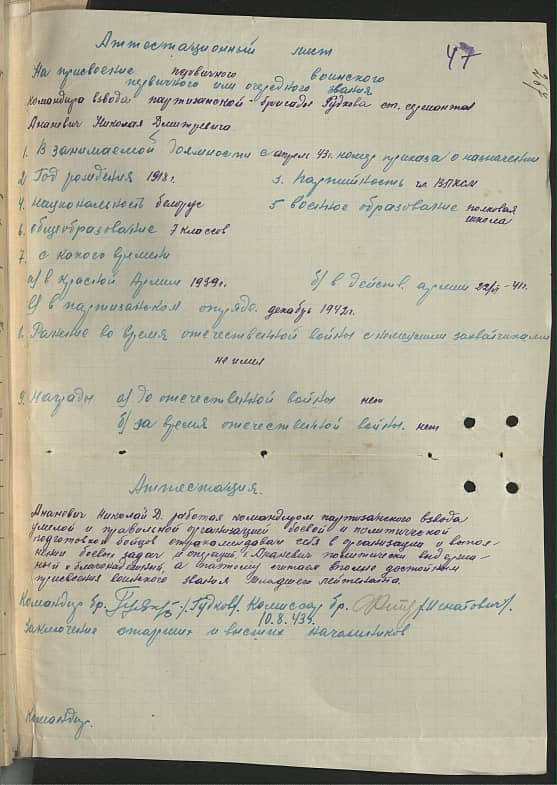 Аттестационный лист
47
На присвоение первичного воинского
первичного или очередного звания
командира взвода партизанской бригады Гудкова ст. сержанта
Ананевич Николая Дмитревича
1. В занимаемой должности с апрель 43 г. номер приказа о назначении
2. Год рождения 1918 г. 3. Партийность чл. ВЛКСМ
4. национальность белорус 5 военное образование полковая школа
6. общеобразование 7 классов
7. с какого времени
а) в Красной Армии 1939 г. б) в действ. армии 22/VI-41 г.
в) в партизанском отрядо. декабрь 1942 г.
8. Ранение во время отечественной войны с немецкими захватчиками
не имел
9. Награды а) до отечественной войны нет
б) за время отечественной войны. нет
Аттестация.
Ананевич Николай Д. работая командиром партизанского взвода
умелой и правильной организацией боевой и политической
подготовки бойцов отрекомендовал себя в организации и выпол-
нении боевых задач и операций. Ананевич политически выдержан-
ный и благонадежный, а поэтому считаю вполне достойным
присвоения воинского звания младшего лейтенанта.
Командир бр. /Гудков/ Комиссар бр. /Игнатович/.
10.8.43 г.
Заключение старших и высших начальников
Командир.